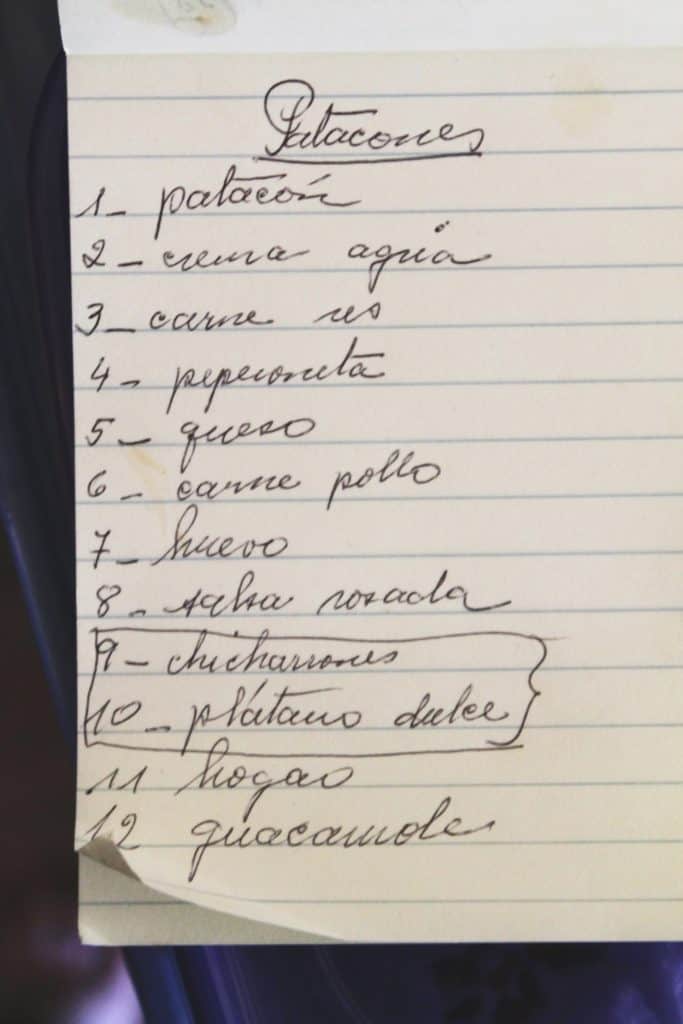 Patacones
1- patacón
2- crema agria
3- carne res
4- peperoneta
5- queso
6- carne pollo
7- huevo
8- salsa rosada
9- chicharrones
10- plátano dulce
11 hogao
12 guacamole